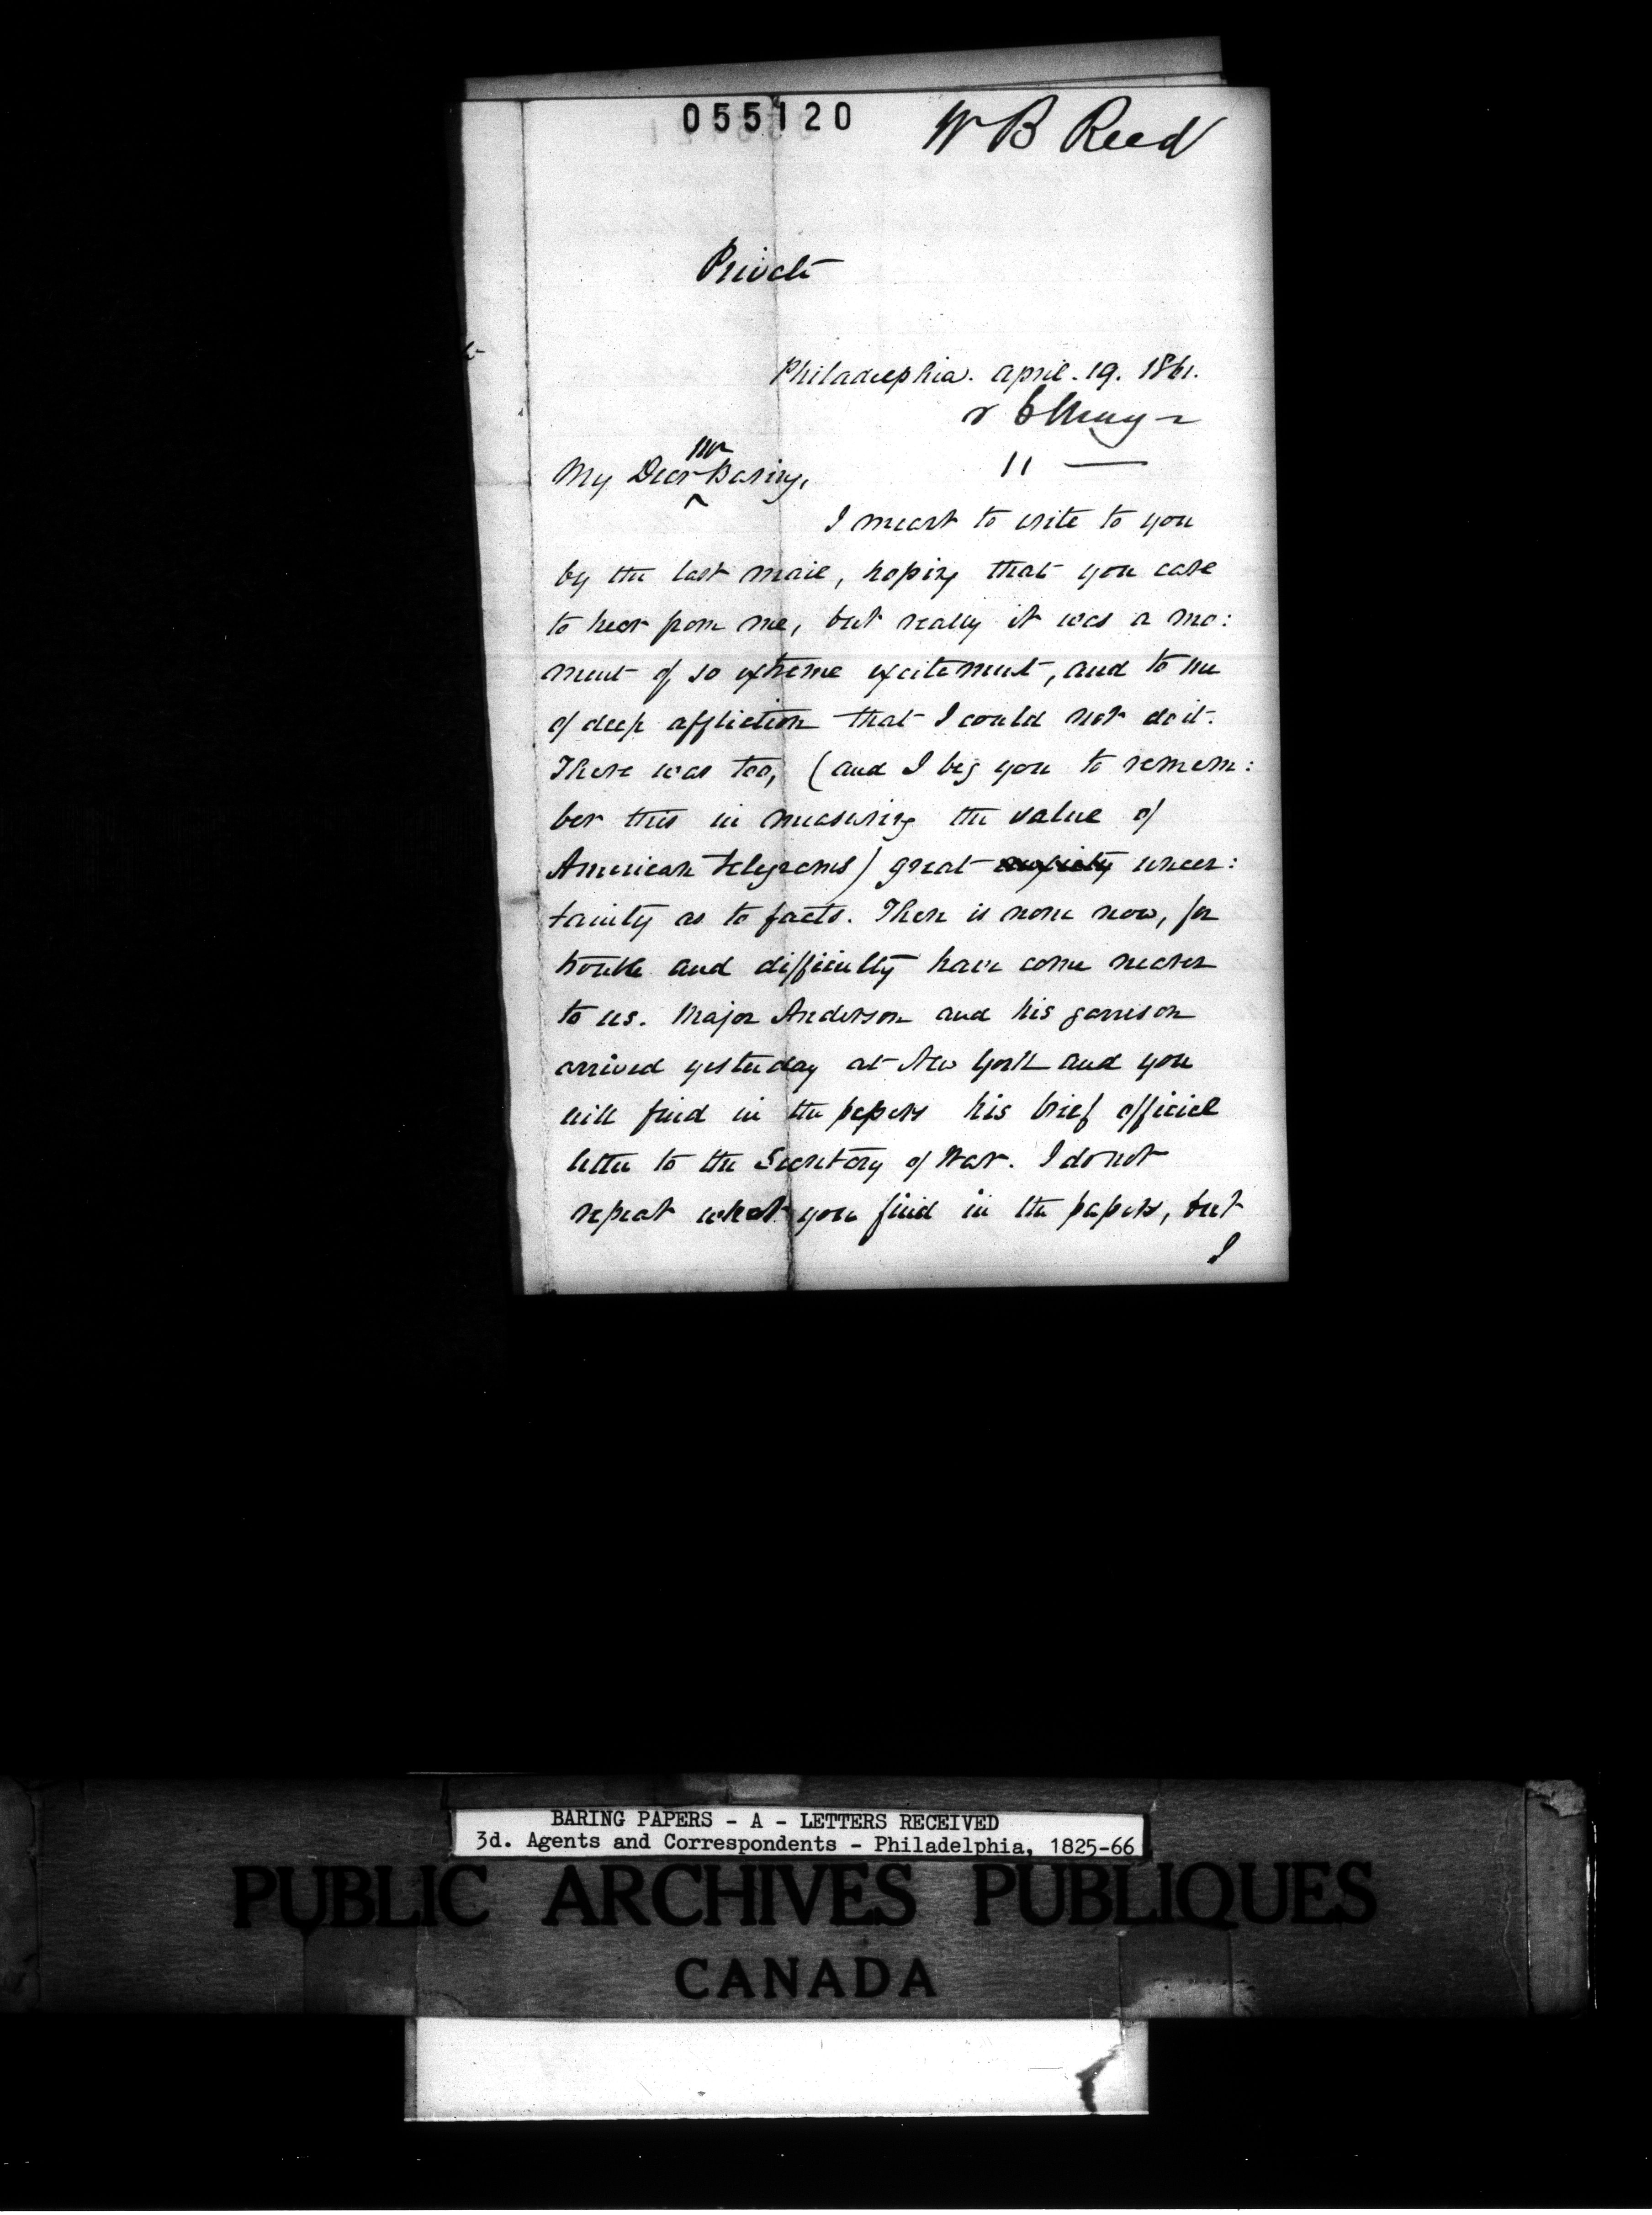 055120
W B Reed
Private
Philadelphia. April. 19. 1861.
r 6 May
11 —
Mr
My Dear Baring,
I meant to write to you
by the last mail, hoping that you care
to hear from me, but really it was a mo:
ment of so extreme excitement, and to me
of deep affliction that I could not do it.
There was too, (and I beg you to remem:
ber this in measuring the value of
American telegrams) great anxiety uncer:
tainty as to facts. There is none now, for
trouble and difficulty have come nearer
to us. Major Anderson and his garrison
arrived yesterday at New York and you
will find in the papers his brief official
letter to the Secretary of War. I do not
repeat what you find in the papers, but
I
BARING PAPERS - A - LETTERS RECEIVED
3d. Agents and Correspondents - Philadelphia, 1825-66
PUBLIC ARCHIVES PUBLIQUES
CANADA